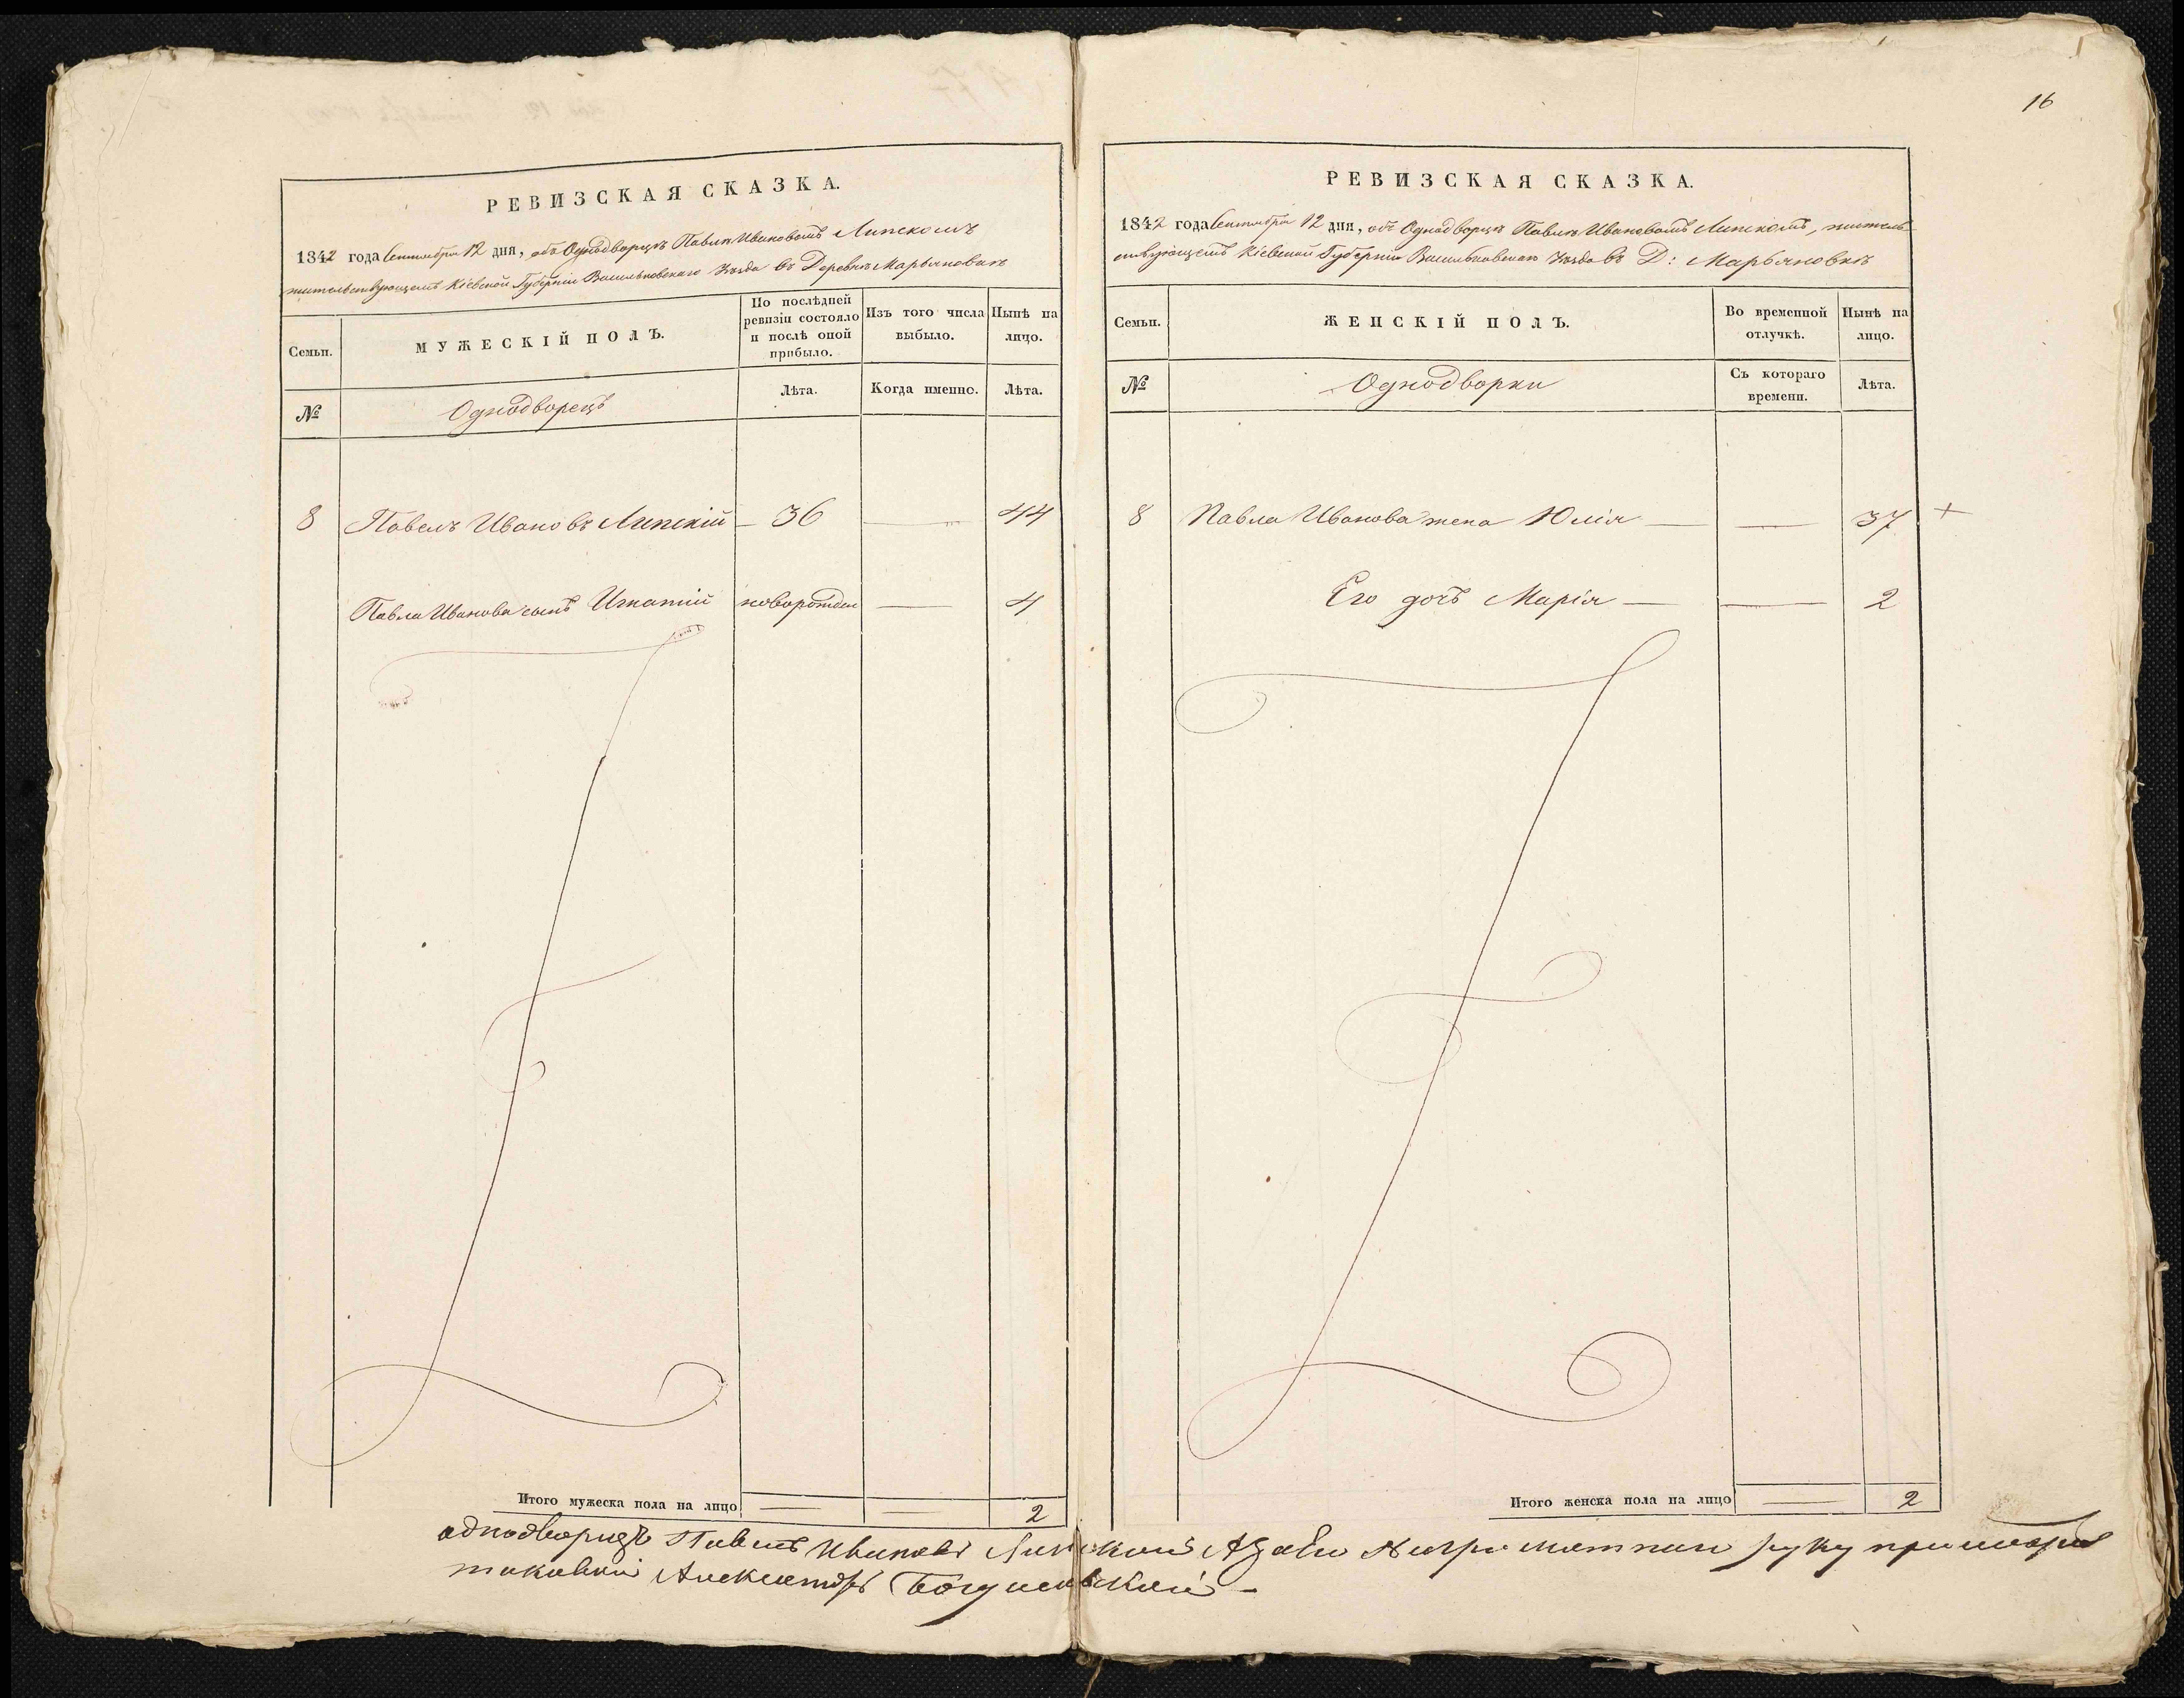 16
РЕВИЗСКАЯ СКАЗКА.
1842 года Сентября 12 дня, объ Однодворцѣ Павлѣ Ивановомъ Липскомъ
жительствующемъ Кіевской Губерніи Васильковскаго Уѣзда въ Деревнѣ Марьяновкѣ
Семьи.
МУЖЕСКІЙ ПОЛЪ.
По послѣдней ревизіи состояло и послѣ оной прибыло.
Изъ того числа выбыло.
Нынѣ на лицо.
№
Однодворецъ
Лѣта.
Когда именно.
Лѣта.
8 Павелъ Ивановъ Липскій — 36 — 44
Павла Иванова сынъ Игнатій новорожден — 4
Итого мужеска пола на лицо — — 2
РЕВИЗСКАЯ СКАЗКА.
1842 года Сентября 12 дня, объ Однодворцѣ Павлѣ Ивановомъ Липскомъ, житель
ствующемъ Кіевской Губерніи Васильковскаго Уѣзда въ Д: Марьяновкѣ
Семьи.
ЖЕНСКІЙ ПОЛЪ.
Во временной отлучкѣ.
Нынѣ на лицо.
№
Однодворки
Съ котораго времени.
Лѣта.
8 Павла Иванова жена Юлія — — 37 +
Его дочь Марія — — 2
Итого женска пола на лицо — 2
однодворецъ Павелъ Ивановъ Липской А за его руку приложилъ
Александръ